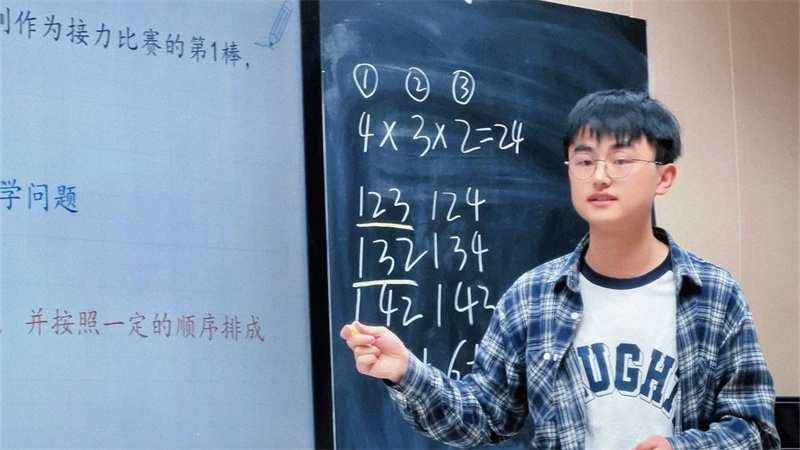 作为接力比赛的第1棒，
学问题
并按照一定的顺序排成
① ② ③
4×3×2=24
123 124
132 134
142 143
UGH